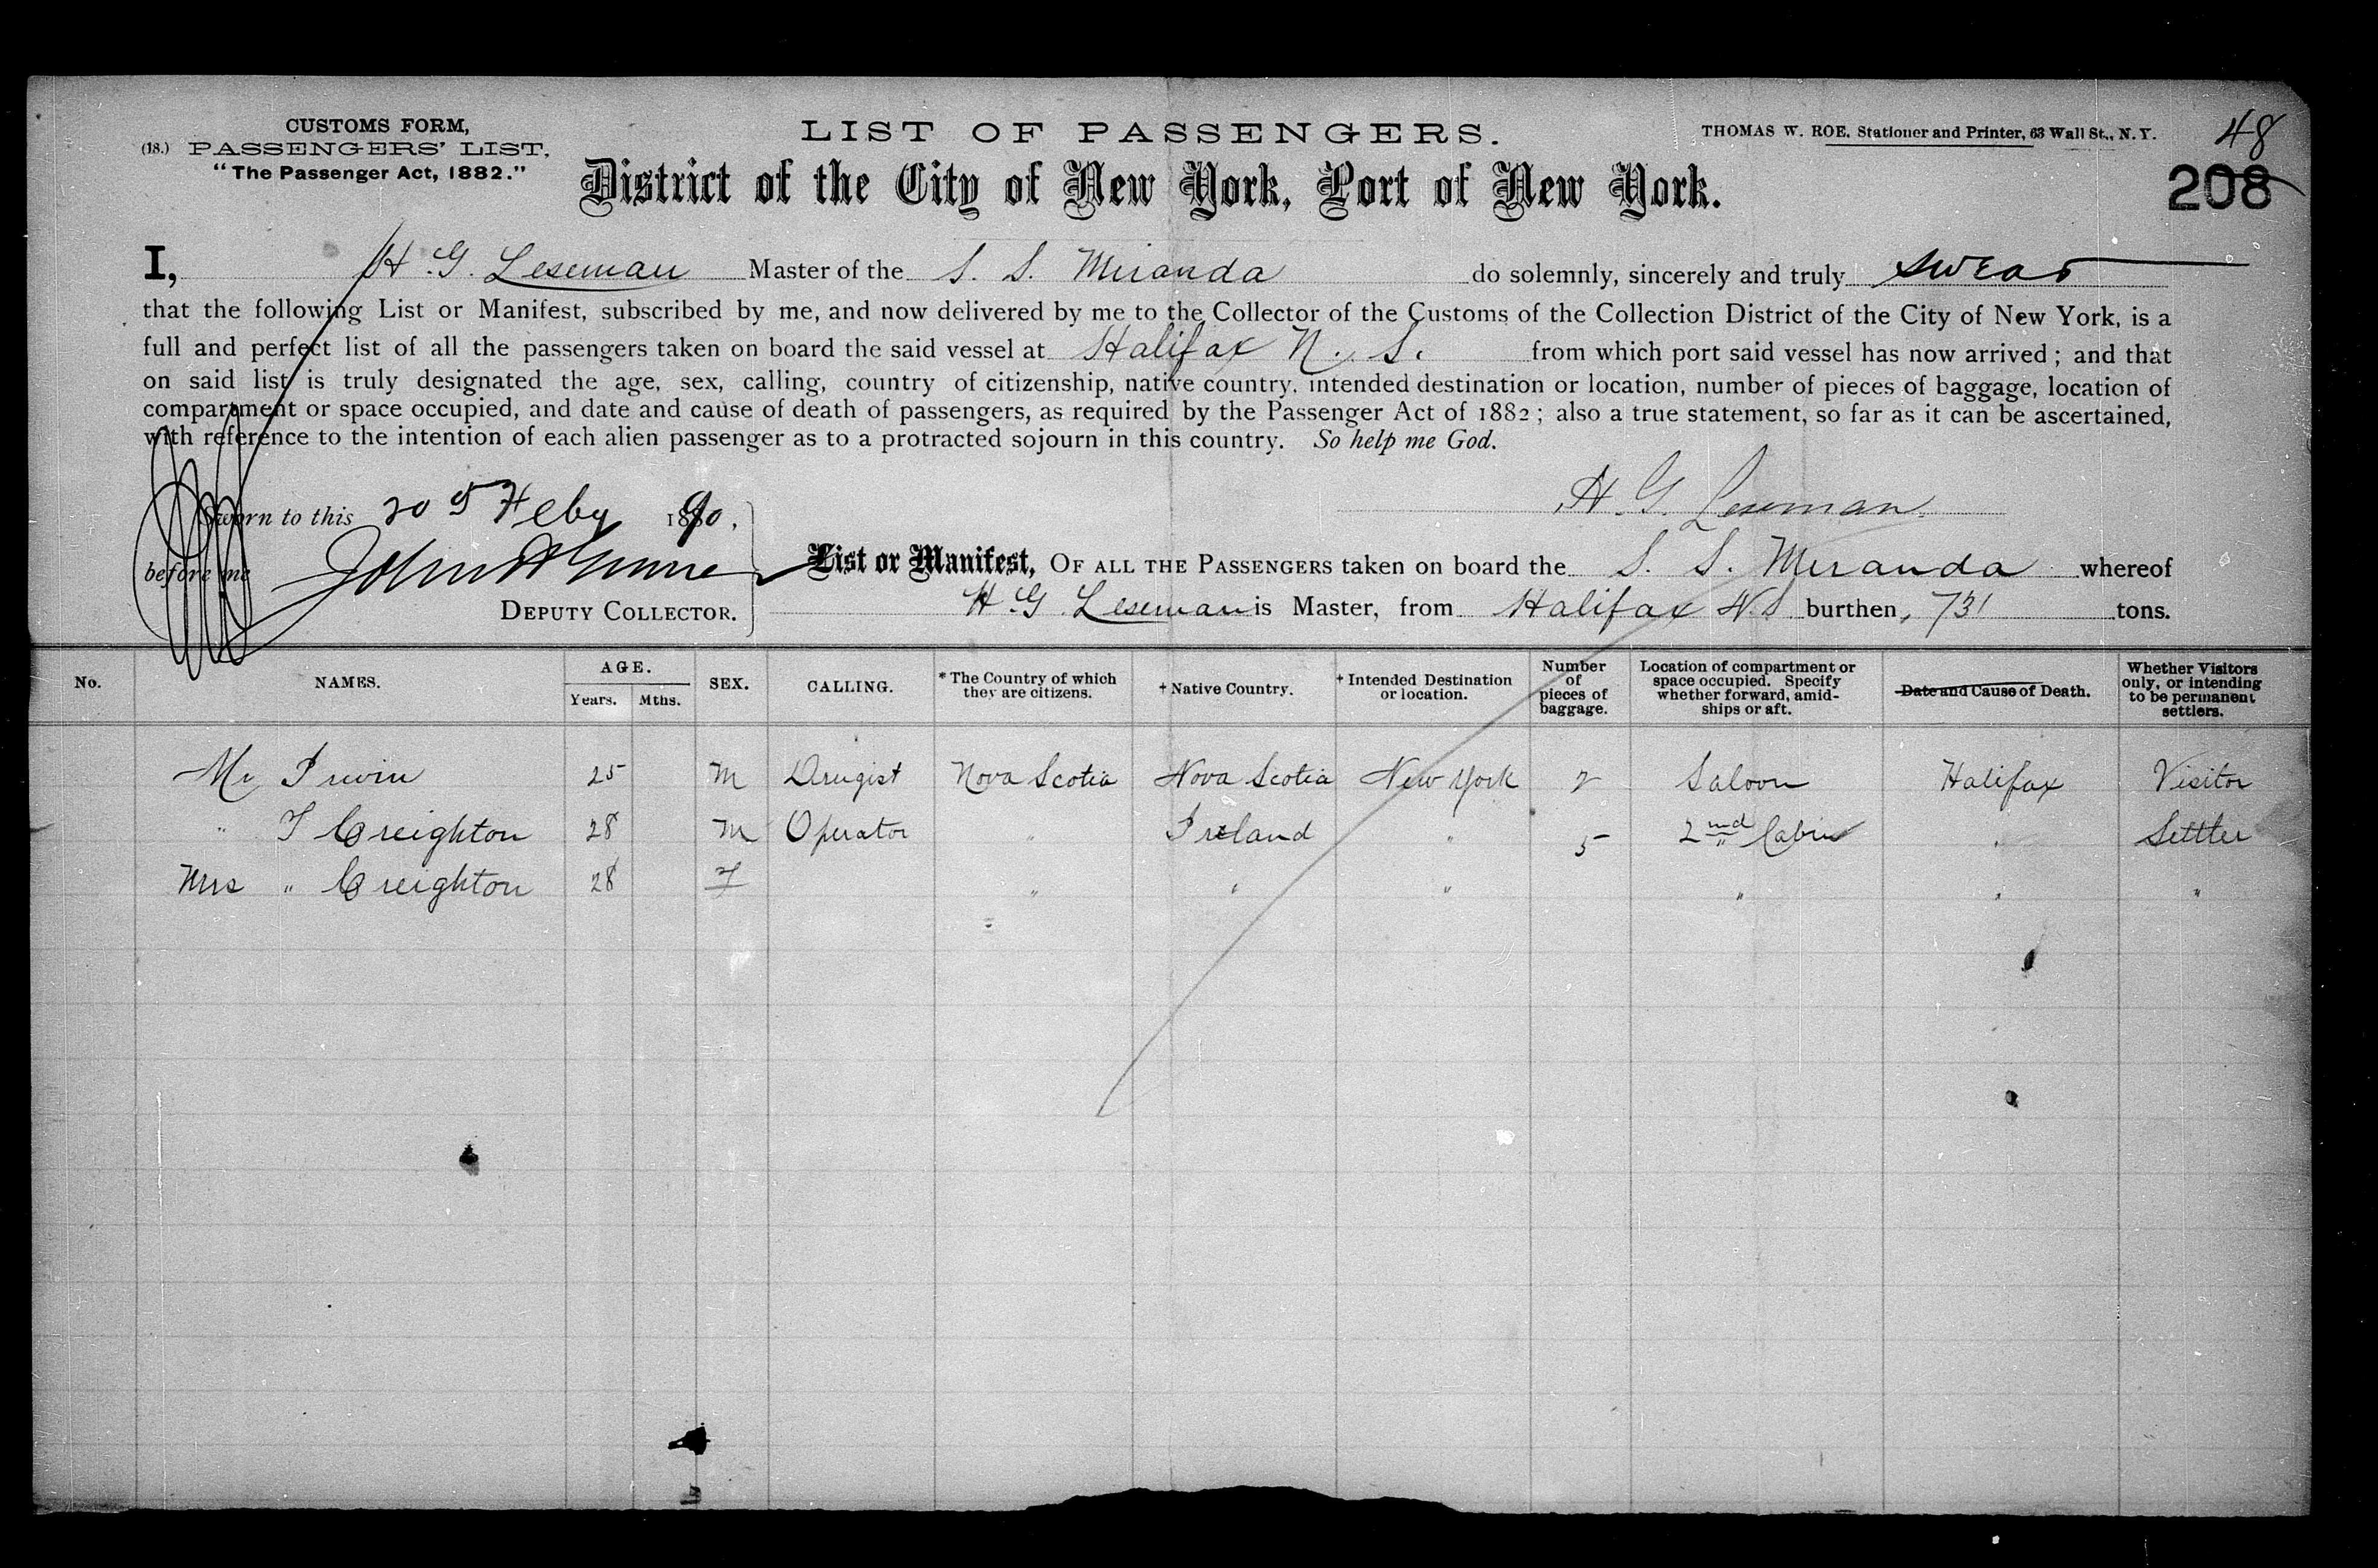 CUSTOMS FORM,
(18.) PASSENGERS' LIST,
"The Passenger Act, 1882."
LIST OF PASSENGERS.
THOMAS W. ROE. Stationer and Printer, 63 Wall St., N. Y.
48
District of the City of New York, Port of New York.
208
I, H. G. Leseman Master of the S. S. Miranda do solemnly, sincerely and truly swear
that the following List or Manifest, subscribed by me, and now delivered by me to the Collector of the Customs of the Collection District of the City of New York, is a
full and perfect list of all the passengers taken on board the said vessel at Halifax N. S. from which port said vessel has now arrived ; and that
on said list is truly designated the age, sex, calling, country of citizenship, native country, intended destination or location, number of pieces of baggage, location of
compartment or space occupied, and date and cause of death of passengers, as required by the Passenger Act of 1882 ; also a true statement, so far as it can be ascertained,
with reference to the intention of each alien passenger as to a protracted sojourn in this country. So help me God.
H. G. Leseman
Sworn to this 20 Feby 1890.
before me John
DEPUTY COLLECTOR.
List or Manifest, OF ALL THE PASSENGERS taken on board the S. S. Miranda whereof
H. G. Leseman is Master, from Halifax N.S. burthen, 731 tons.
No. NAMES. AGE. Years. Mths. SEX. CALLING. * The Country of which they are citizens. † Native Country. † Intended Destination or location. Number of pieces of baggage. Location of compartment or space occupied. Specify whether forward, amidships or aft. Date and Cause of Death. Whether Visitors only, or intending to be permanent settlers.
Mr Irwin 25 M Drugist Nova Scotia Nova Scotia New York 2 Saloon Halifax Visitor
" T Creighton 28 M Operator " Ireland " 5 2nd Cabin " Settler
Mrs " Creighton 28 F " " " " " "